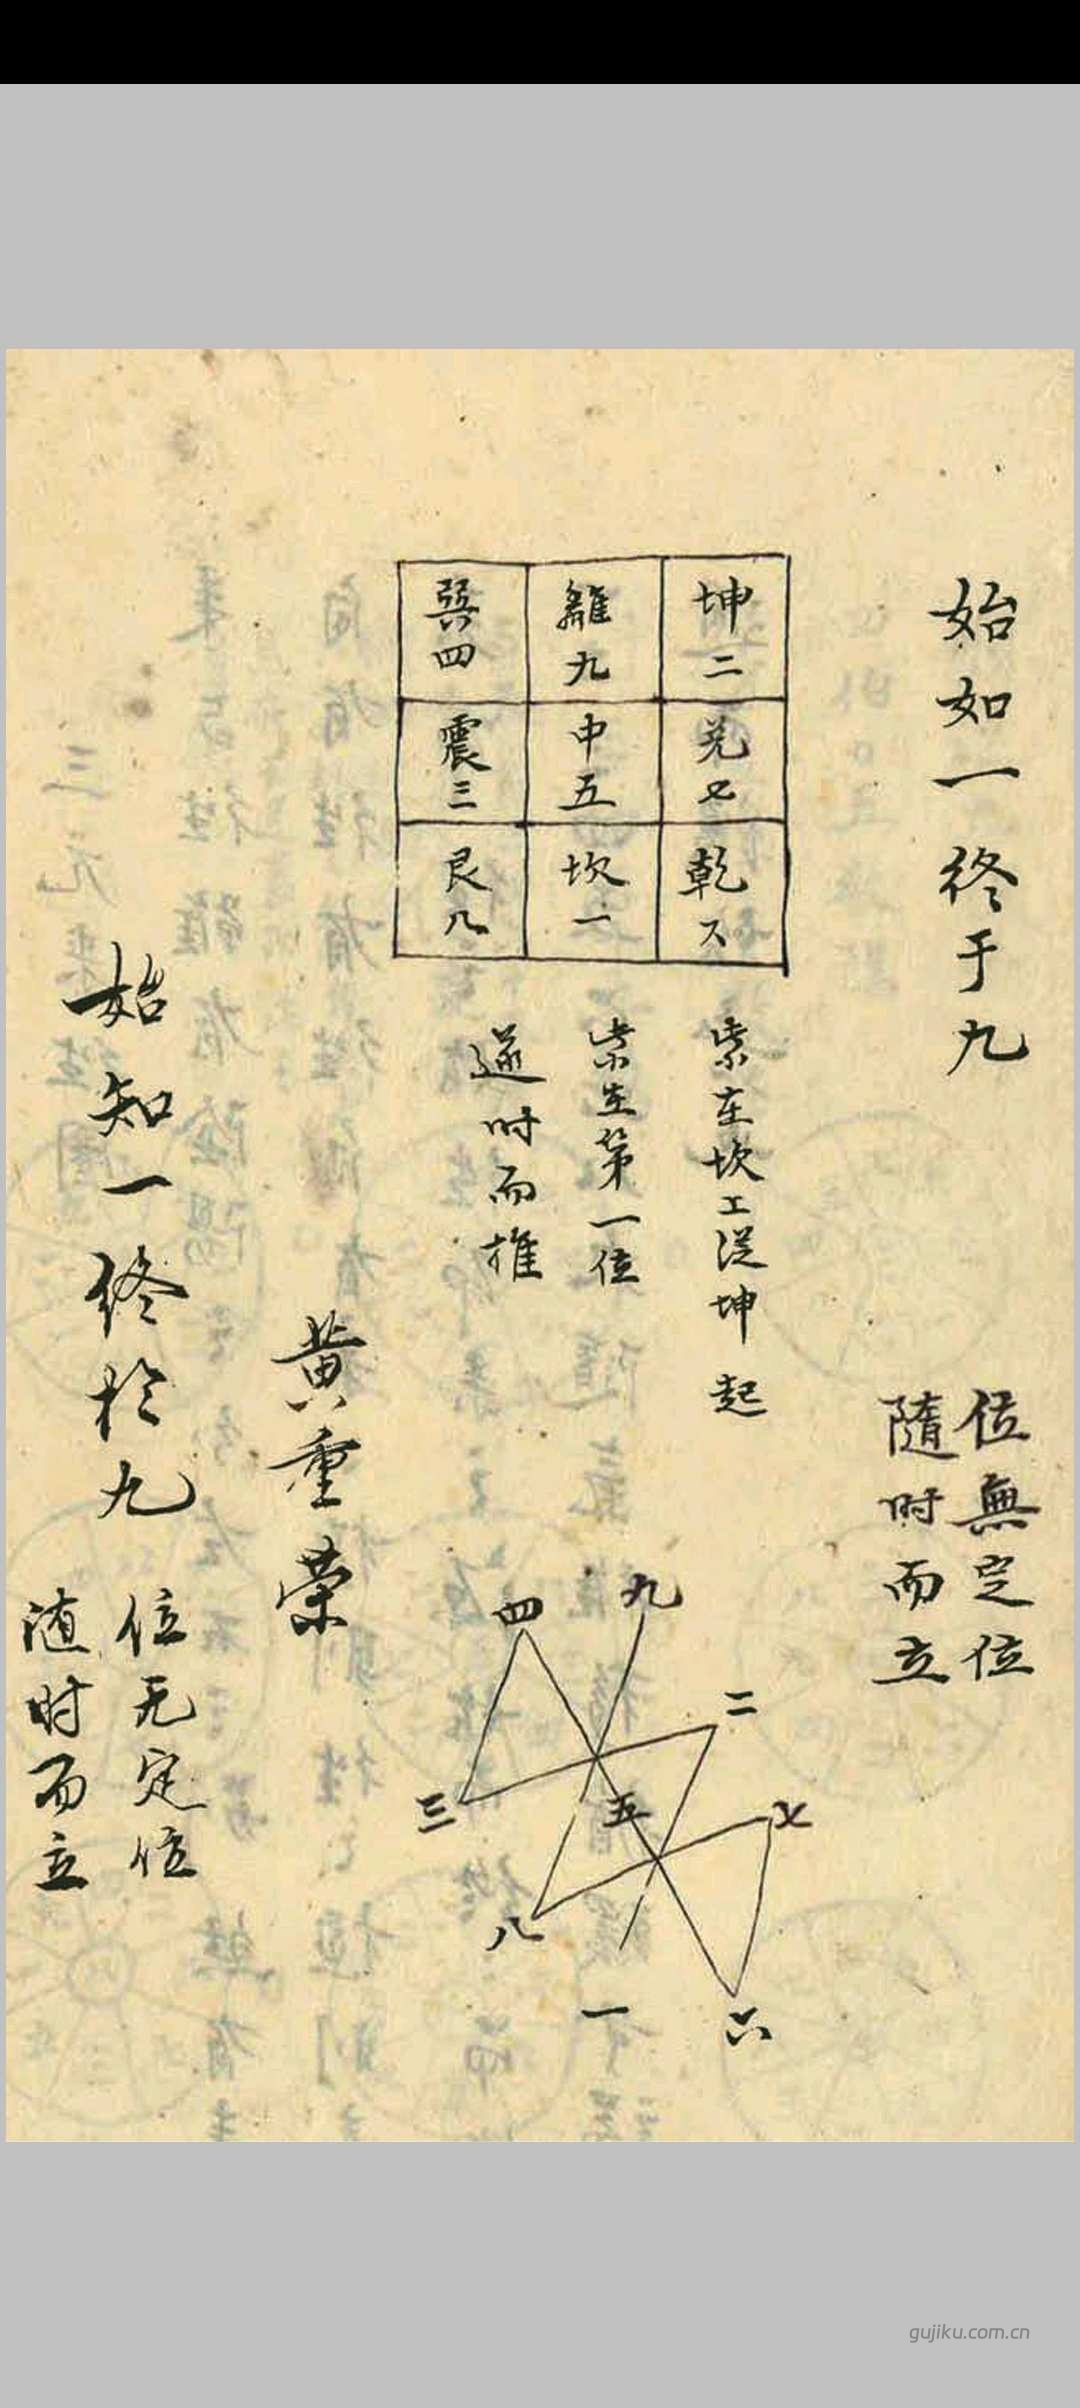 始如一終于九
位無定位
隨时而立
坤二
離九
巽四
兌七
中五
震三
乾六
坎一
艮八
紫在坎工從坤起
紫生第一位
遂时而推
九
四
二
三
五
七
八
一
六
黄重荣
始知一终於九
位无定位
随时而立
gujiku.com.cn